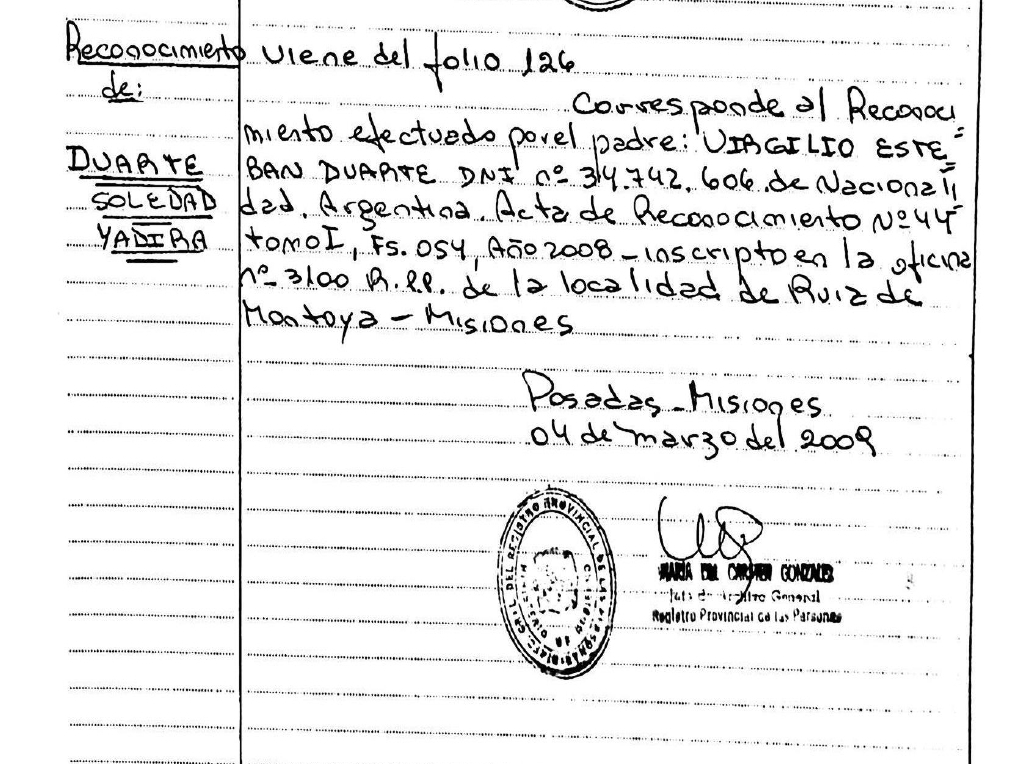 Reconocimiento
de:
DUARTE
SOLEDAD
YADIRA
Viene del folio 126
Corresponde al Reconoci
miento efectuado por el padre: VIRGILIO ESTE=
BAN DUARTE DNI nº 34.742.606. de Nacionali
dad, Argentina. Acta de Reconocimiento Nº 44
tomo I, Fs. 054, Año 2008 - inscripto en la oficina
nº 3100 R.PP. de la localidad de Ruiz de
Montoya - Misiones
Posadas - Misiones
04 de marzo del 2009
REGISTRO PROVINCIAL DE LAS PERSONAS
MARIA DEL CARMEN GONZALEZ
Jefe de Archivo General
Registro Provincial de las Personas